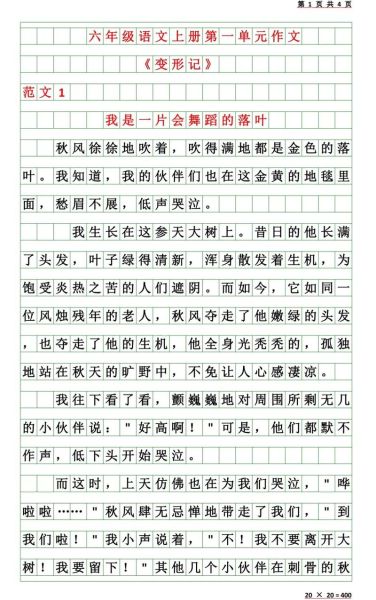 第 1 页 共 4 页
六年级语文上册第一单元作文
《变形记》
范文1
我是一片会舞蹈的落叶
秋风徐徐地吹着，吹得满地都是金色的落
叶。我知道，我的伙伴们也在这金黄的地毯里
面，愁眉不展，低声哭泣。
我生长在这参天大树上。昔日的他长满
了头发，叶子绿得清新，浑身散发着生机，为
饱受炎热之苦的人们遮阴。而如今，它如同一
位风烛残年的老人，秋风夺走了他嫩绿的头发
，也夺走了他的生机，他全身光秃秃的，孤独
地站在秋天的旷野中，不免让人心感凄凉。
我往下看了看，颤巍巍地对周围所剩无几
的小伙伴说："好高啊！"可是，他们都默不
作声，低下头开始哭泣。
而这时，上天仿佛也在为我们哭泣，"哗
啦啦……"秋风肆无忌惮地带走了我们，"到
我们啦！"我小声说着，"不！我不要离开大
树！我要留下！"其他几个小伙伴在刺骨的秋
20 × 20＝400